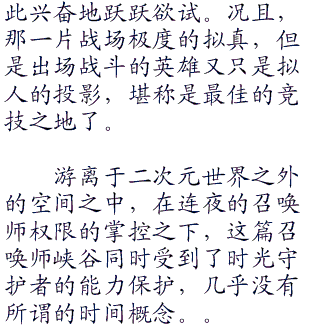 此兴奋地跃跃欲试。况且，
那一片战场极度的拟真，但
是出场战斗的英雄又只是拟
人的投影，堪称是最佳的竞
技之地了。
游离于二次元世界之外
的空间之中，在连夜的召唤
师权限的掌控之下，这篇召
唤师峡谷同时受到了时光守
护者的能力保护，几乎没有
所谓的时间概念。。